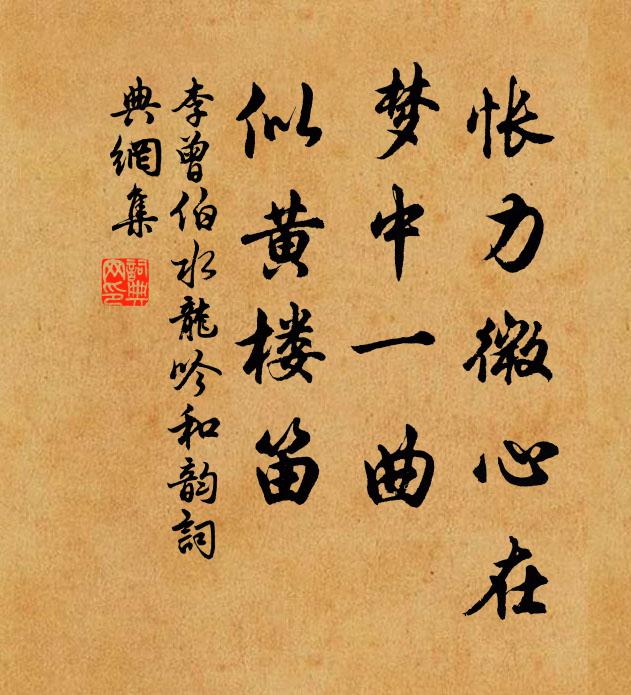 怅力微心在
梦中一曲
似黄楼笛
李曾伯水龍吟和韵詞
典網集
詞典
网印